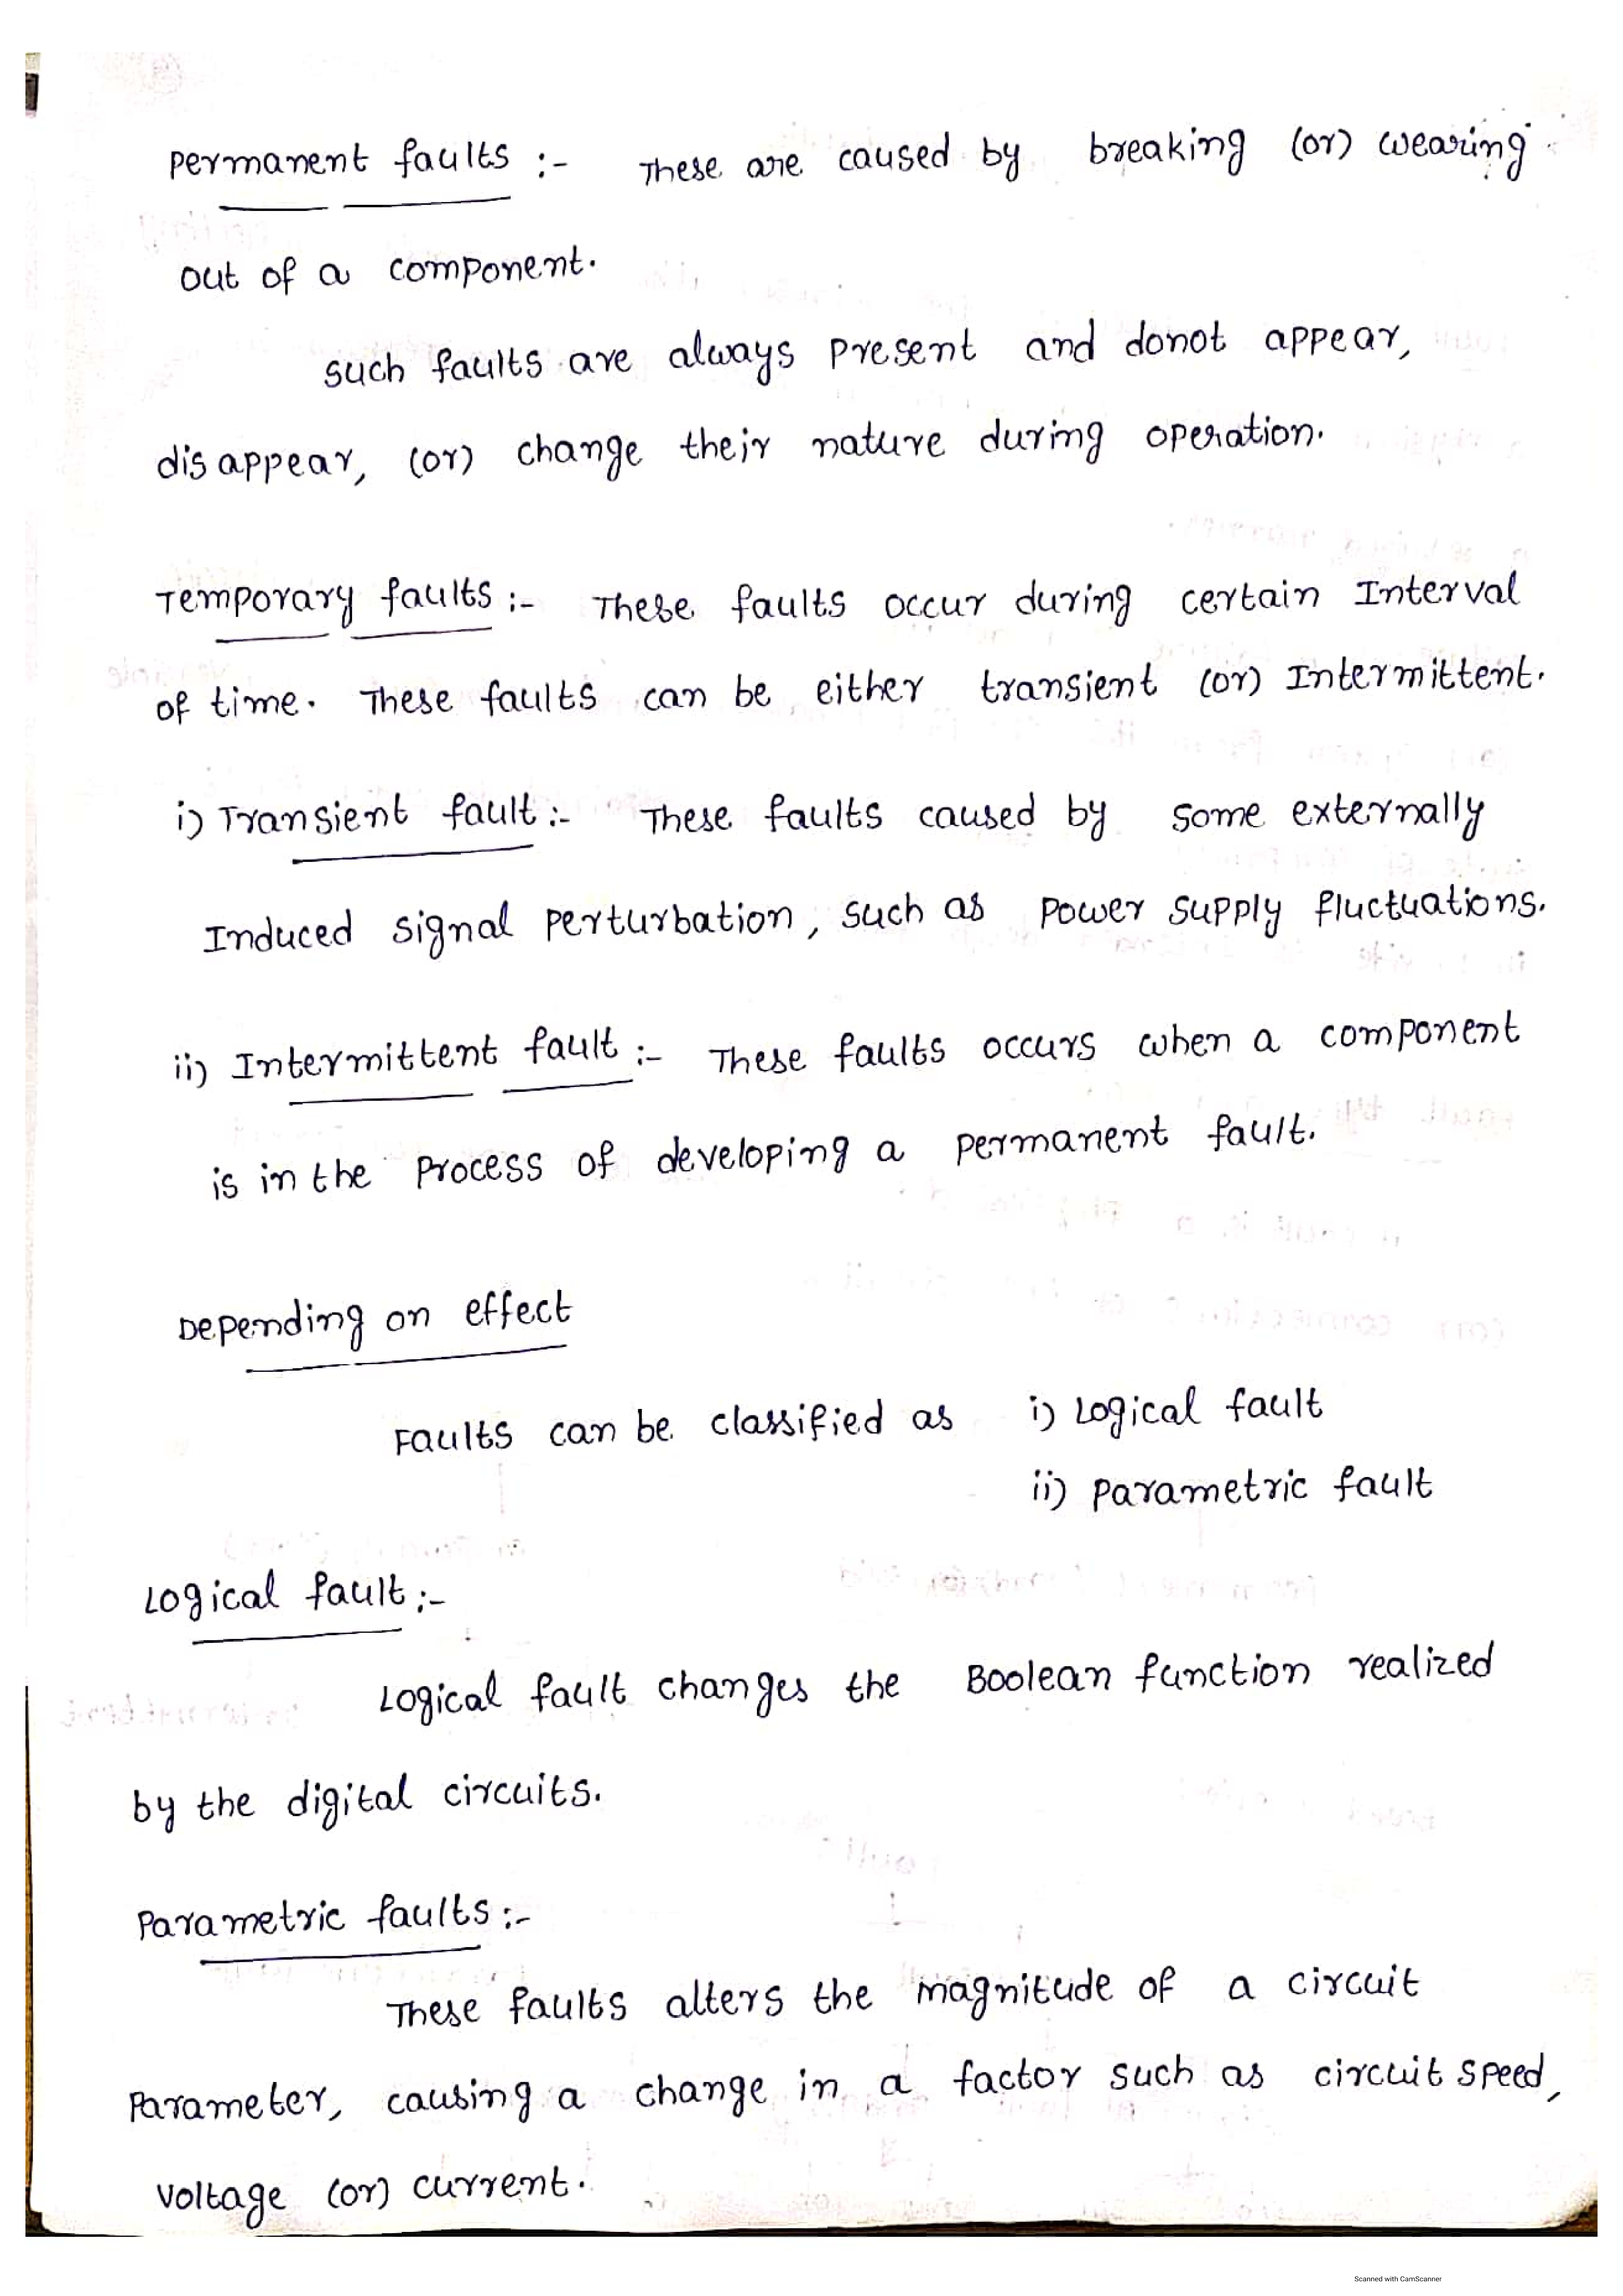 Permanent faults :- These are caused by breaking (or) wearing
out of a component.
such faults are always present and donot appear,
disappear, (or) change their nature during operation.
Temporary faults :- These faults occur during certain Interval
of time. These faults can be either transient (or) Intermittent.
i) Transient fault :- These faults caused by some externally
Induced signal perturbation, such as power supply fluctuations.
ii) Intermittent fault :- These faults occurs when a component
is in the process of developing a permanent fault.
Depending on effect
Faults can be classified as i) Logical fault
ii) parametric fault
Logical fault :-
Logical fault changes the Boolean function realized
by the digital circuits.
Parametric faults :-
These faults alters the magnitude of a circuit
Parameter, causing a change in a factor such as circuit speed,
voltage (or) current.
Scanned with CamScanner